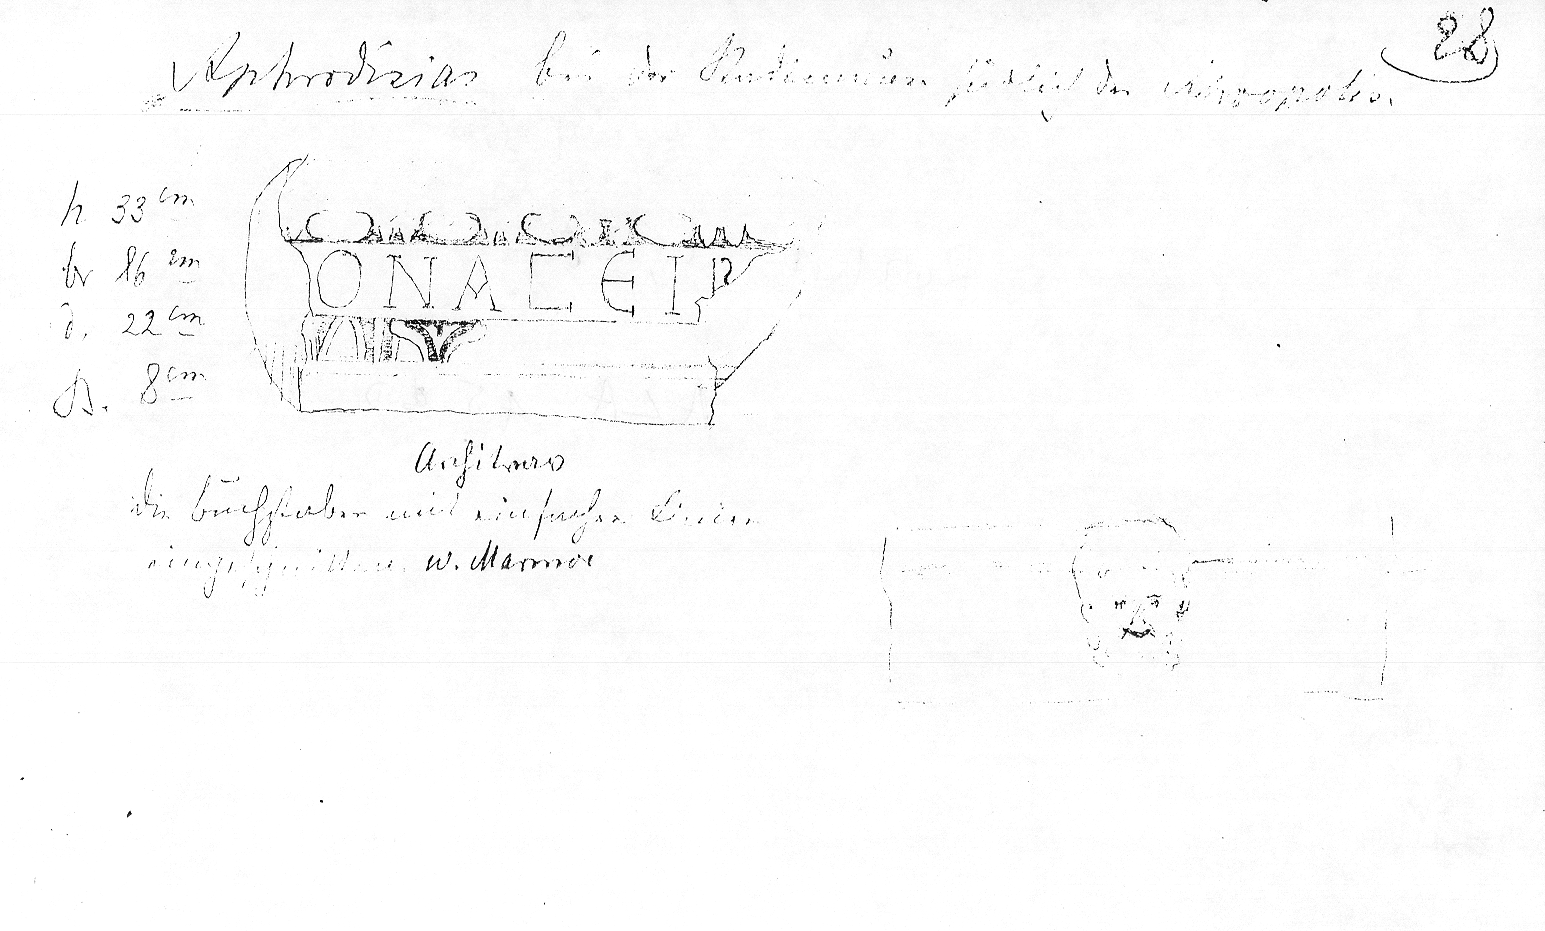 28
Aphrodisias bei der Stadtmauer südlich der Akropolis.
h 33 cm
br 86 cm
d. 22 cm
B. 8 cm
ONAΓEIP
Architrav
die Buchstaben mit einfachen Linien
eingeschnitten. w. Marmor